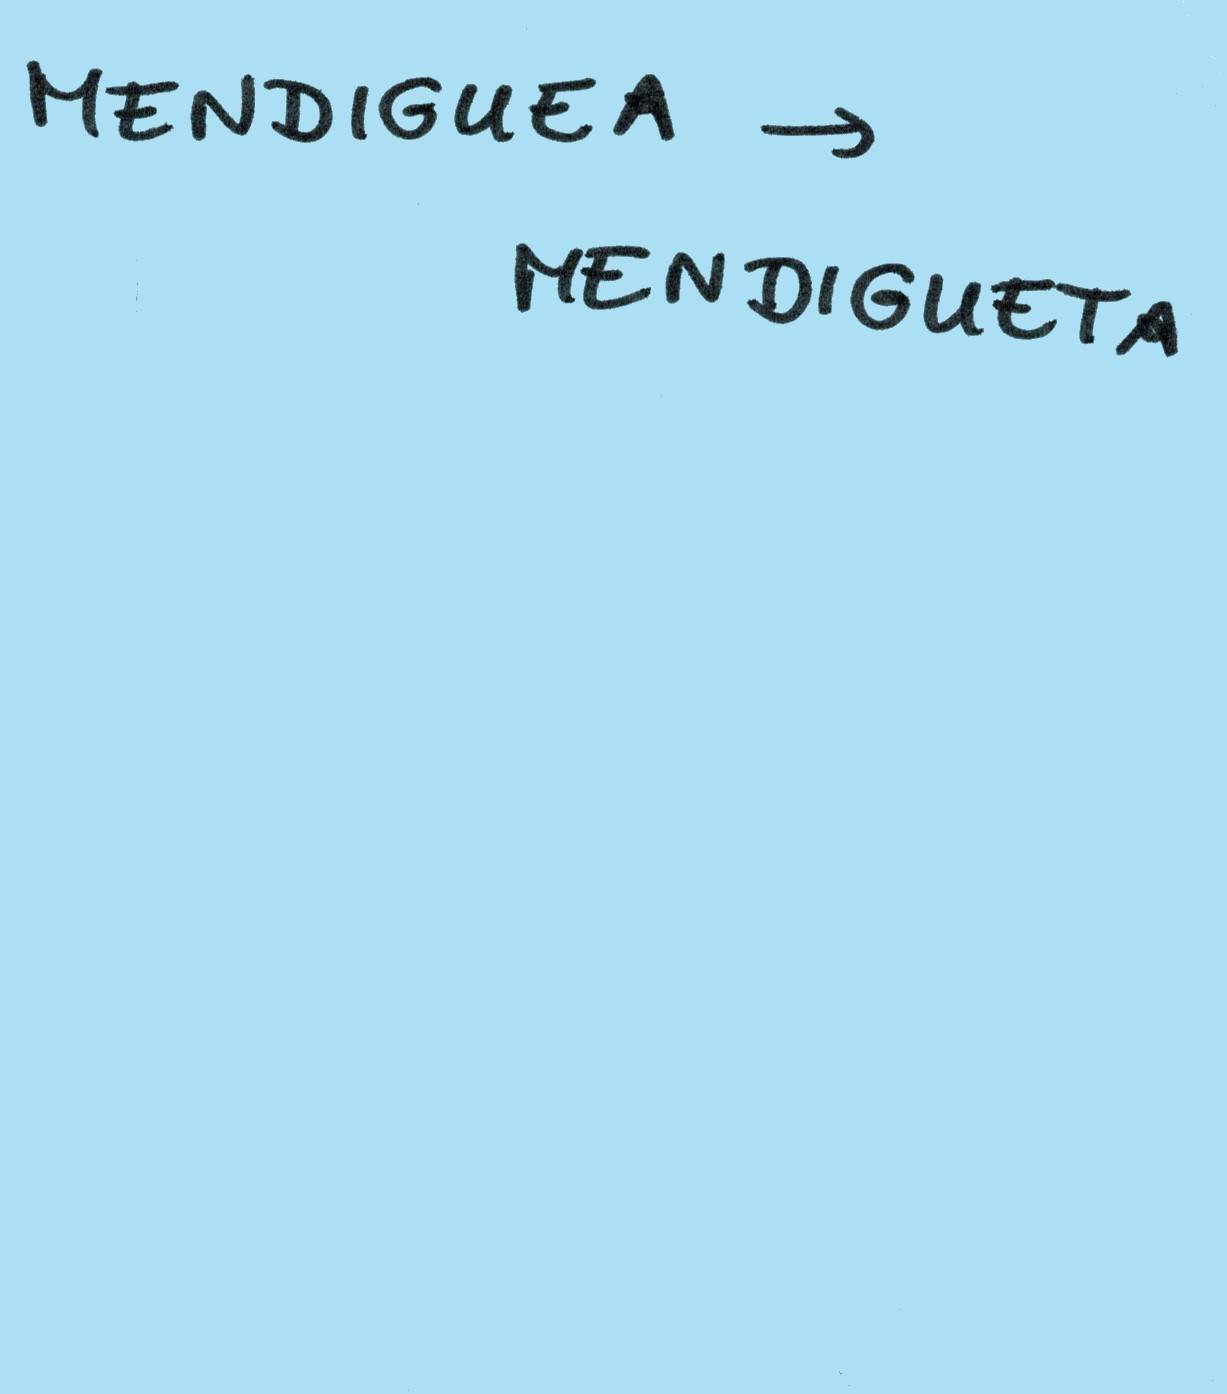 MENDIGUEA →
MENDIGUETA